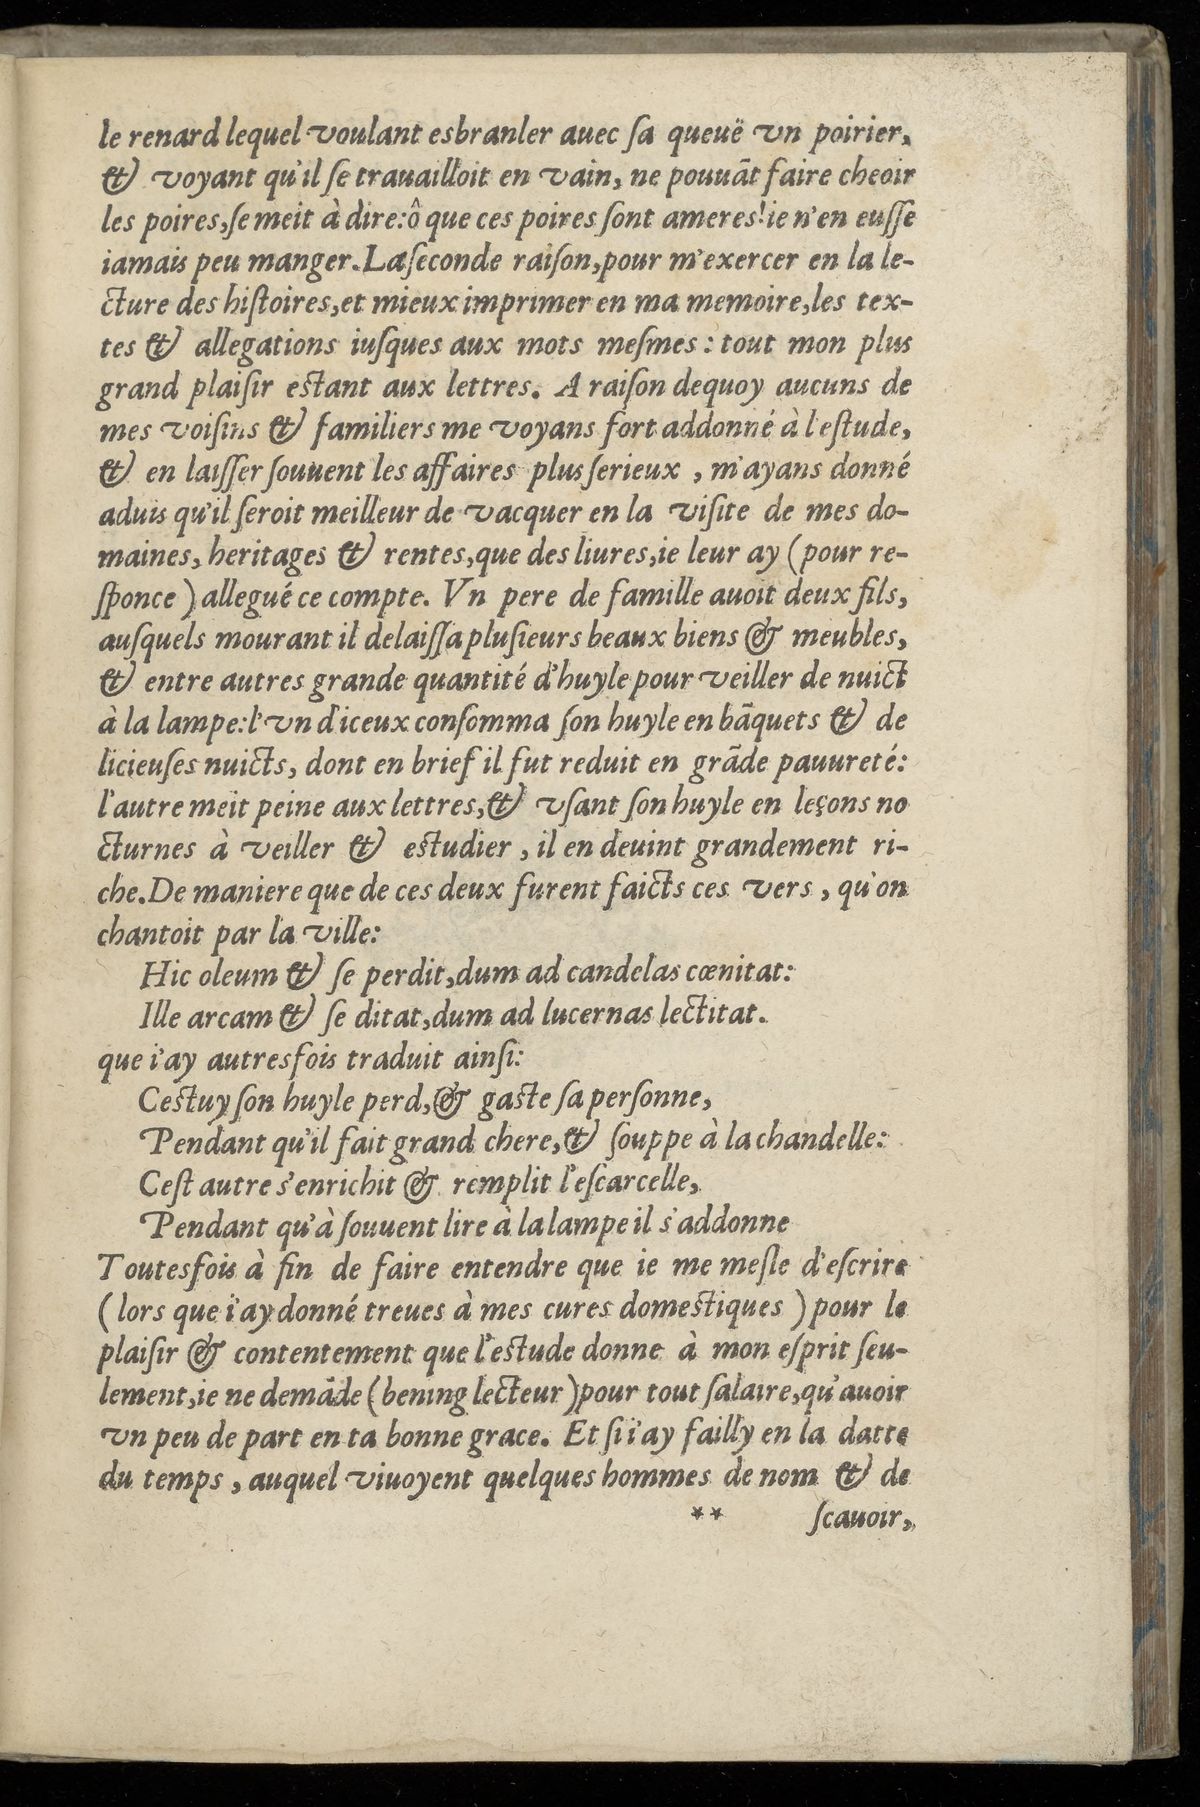 le renard lequel voulant esbranler auec ſa queuë vn poirier,
& voyant qu'il ſe trauailloit en vain, ne pouuãt faire cheoir
les poires,ſe meit à dire:ô que ces poires ſont ameres!ie n'en euſſe
iamais peu manger.La ſeconde raiſon,pour m'exercer en la le-
cture des hiſtoires,et mieux imprimer en ma memoire,les tex-
tes & allegations iuſques aux mots meſmes : tout mon plus
grand plaiſir eſtant aux lettres. A raiſon dequoy aucuns de
mes voiſins & familiers me voyans fort addonné à l'eſtude,
& en laiſſer ſouuent les affaires plus ſerieux , m'ayans donné
aduis qu'il ſeroit meilleur de vacquer en la viſite de mes do-
maines, heritages & rentes,que des liures,ie leur ay (pour re-
ſponce ) allegué ce compte. Vn pere de famille auoit deux fils,
auſquels mourant il delaiſſa pluſieurs beaux biens & meubles,
& entre autres grande quantité d'huyle pour veiller de nuict
à la lampe:l'vn d'iceux conſomma ſon huyle en bãquets & de
licieuſes nuicts, dont en brief il fut reduit en grãde pauureté:
l'autre meit peine aux lettres,& vſant ſon huyle en leçons no
cturnes à veiller & eſtudier , il en deuint grandement ri-
che.De maniere que de ces deux furent faicts ces vers , qu'on
chantoit par la ville:
Hic oleum & ſe perdit,dum ad candelas cœnitat:
Ille arcam & ſe ditat,dum ad lucernas lectitat.
que i'ay autresfois traduit ainſi:
Ceſtuy ſon huyle perd,& gaſte ſa perſonne,
Pendant qu'il fait grand chere,& ſouppe à la chandelle:
Ceſt autre s'enrichit & remplit l'eſcarcelle,
Pendant qu'à ſouuent lire à la lampe il s'addonne
Toutesfois à fin de faire entendre que ie me meſle d'eſcrire
(lors que i'ay donné treues à mes cures domeſtiques ) pour le
plaiſir & contentement que l'eſtude donne à mon eſprit ſeu-
lement,ie ne demãde (bening lecteur )pour tout ſalaire,qu'auoir
vn peu de part en ta bonne grace. Et ſi i'ay failly en la datte
du temps , auquel viuoyent quelques hommes de nom & de
** ſcauoir,